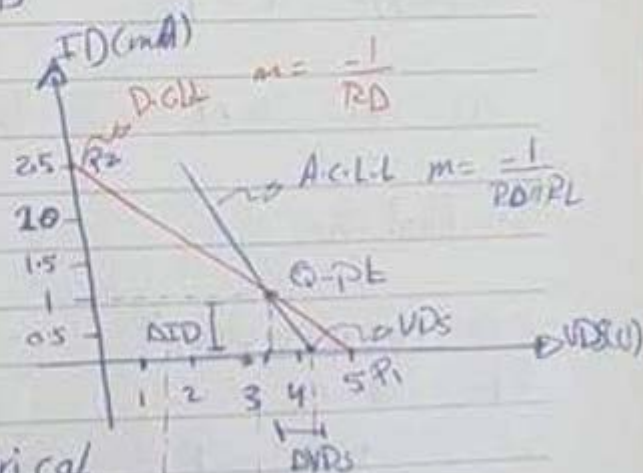 ID(mA)
D.C.L.L m= -1/RD
2.5 P2
A.C.L.L m= -1/RD∥RL
20
1.5
Q-pt
1
0.5 ΔID VDS VDS(V)
1 2 3 4 5 P1
ΔVDS
rical